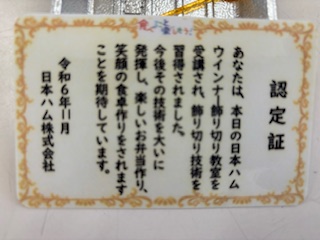 認定証
あなたは、本日の日本ハム
ウインナー飾り切り教室を
受講され、飾り切り技術を
習得されました。
今後その技術を大いに
発揮し、楽しいお弁当作り、
笑顔の食卓作りをされます
ことを期待しています。
令和6年11月
日本ハム株式会社